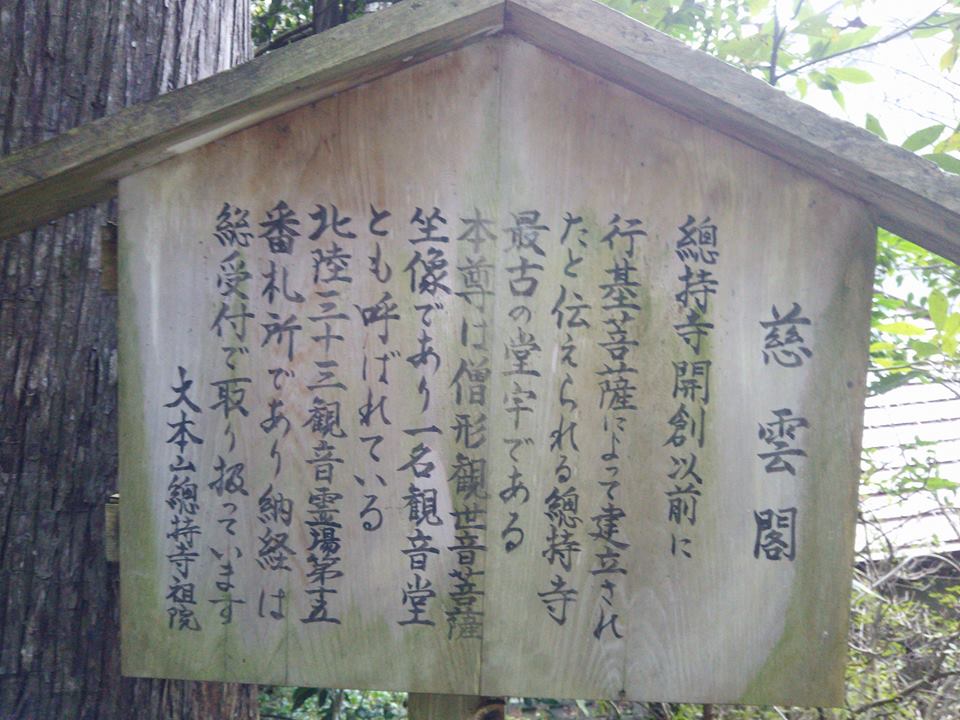 慈雲閣
總持寺開創以前に
行基菩薩によって建立され
たと伝えられる總持寺
最古の堂宇である
本尊は僧形観世音菩薩
坐像であり一名観音堂
とも呼ばれている
北陸三十三観音霊場第十五
番札所であり納経は
総受付で取り扱っています
大本山總持寺祖院